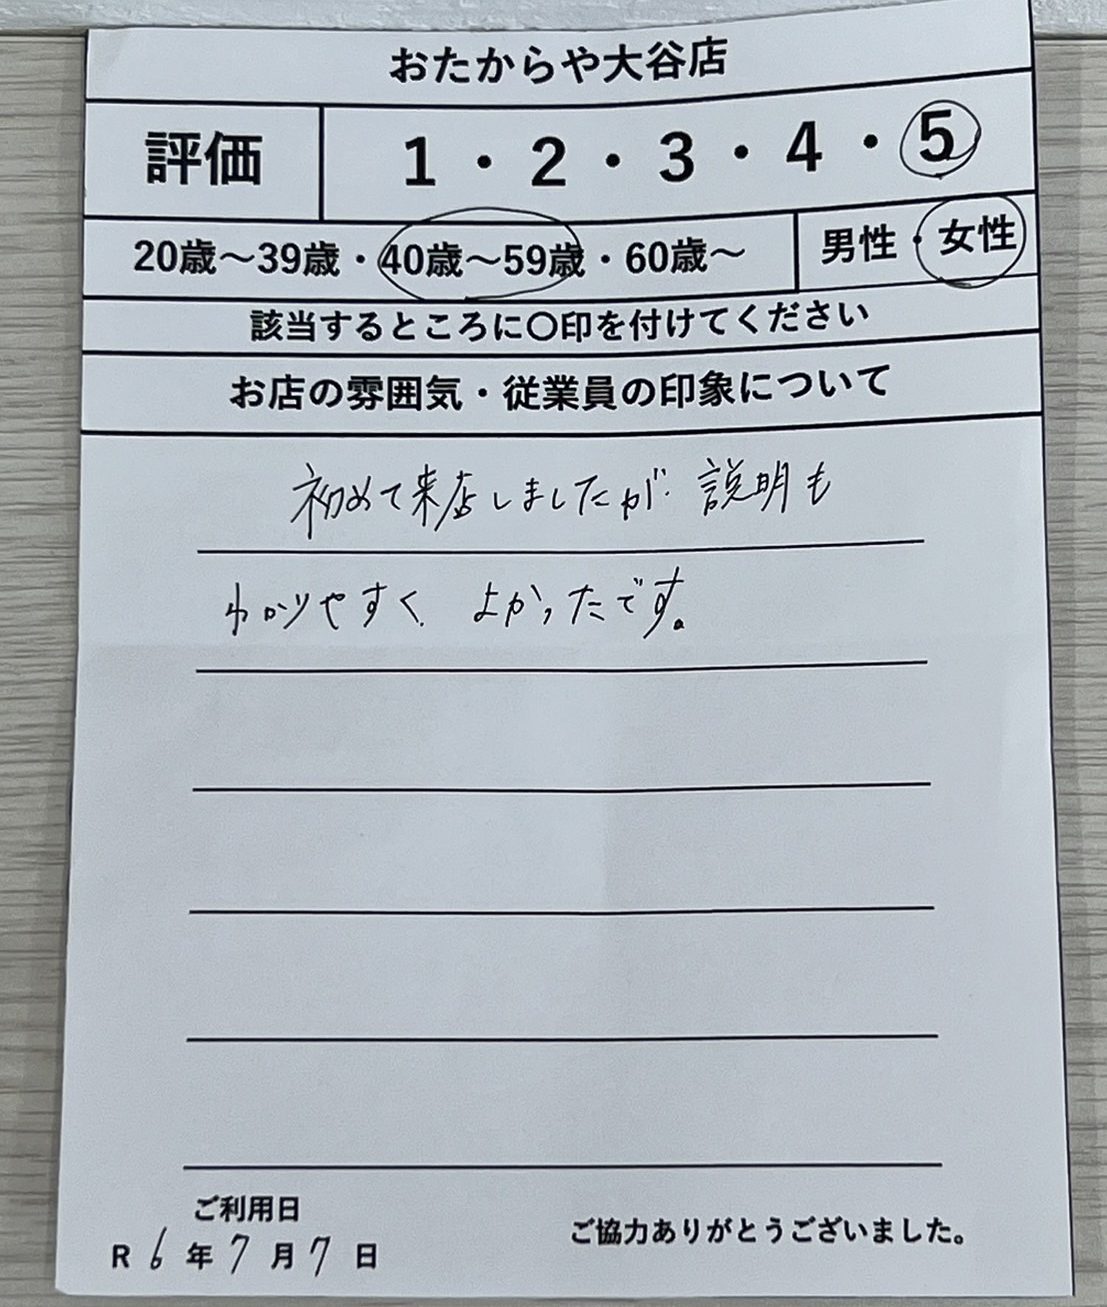 おたからや大谷店
評価 1・2・3・4・5
20歳～39歳・40歳～59歳・60歳～ 男性・女性
該当するところに〇印を付けてください
お店の雰囲気・従業員の印象について
初めて来店しましたが、説明も
わかりやすく、よかったです。
ご利用日
R 6 年 7 月 7 日
ご協力ありがとうございました。